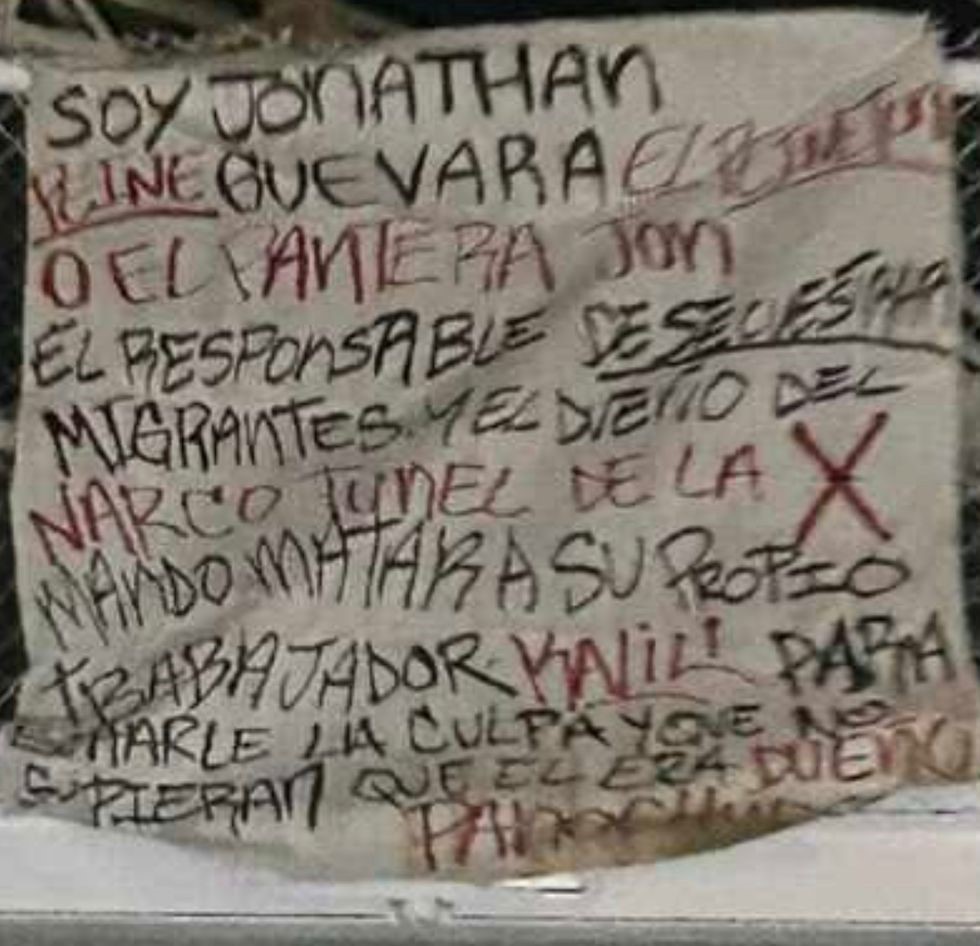 SOY JONATHAN
KLINE GUEVARA EL
O EL PANTERA JON
EL RESPONSABLE DE SECUESTRAR
MIGRANTES Y EL DUEÑO DEL
NARCO TUNEL DE LA X
MANDO MATAR A SU PROPIO
TRABAJADOR KALIL PARA
ECHARLE LA CULPA Y QUE NO
SUPIERAN QUE EL ERA DUEÑO